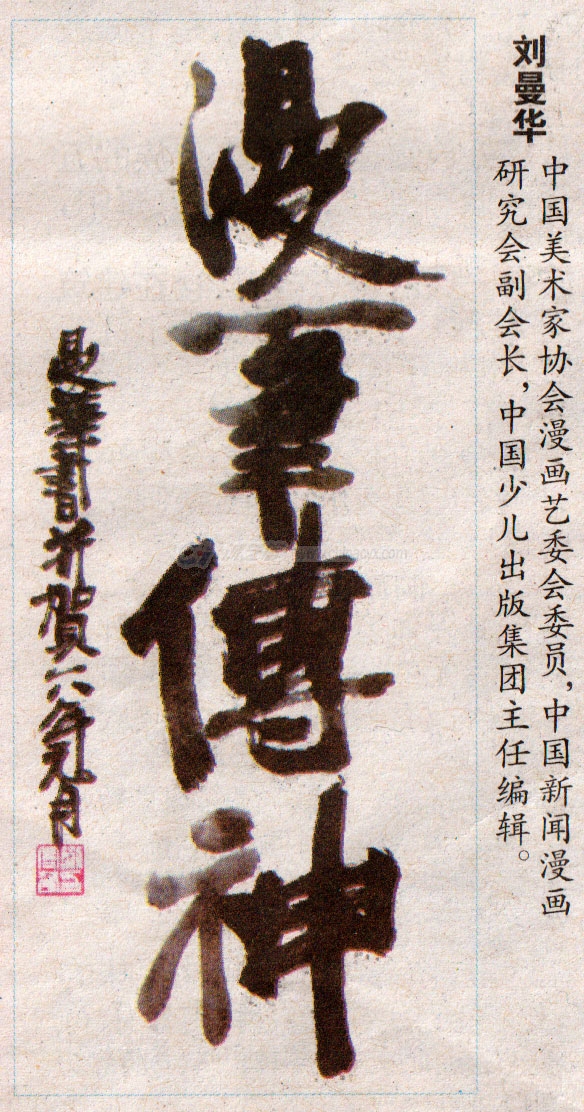 刘曼华
中国美术家协会漫画艺委会委员，中国新闻漫画
研究会副会长，中国少儿出版集团主任编辑。
漫事傳神
曼華書并賀一八年元月